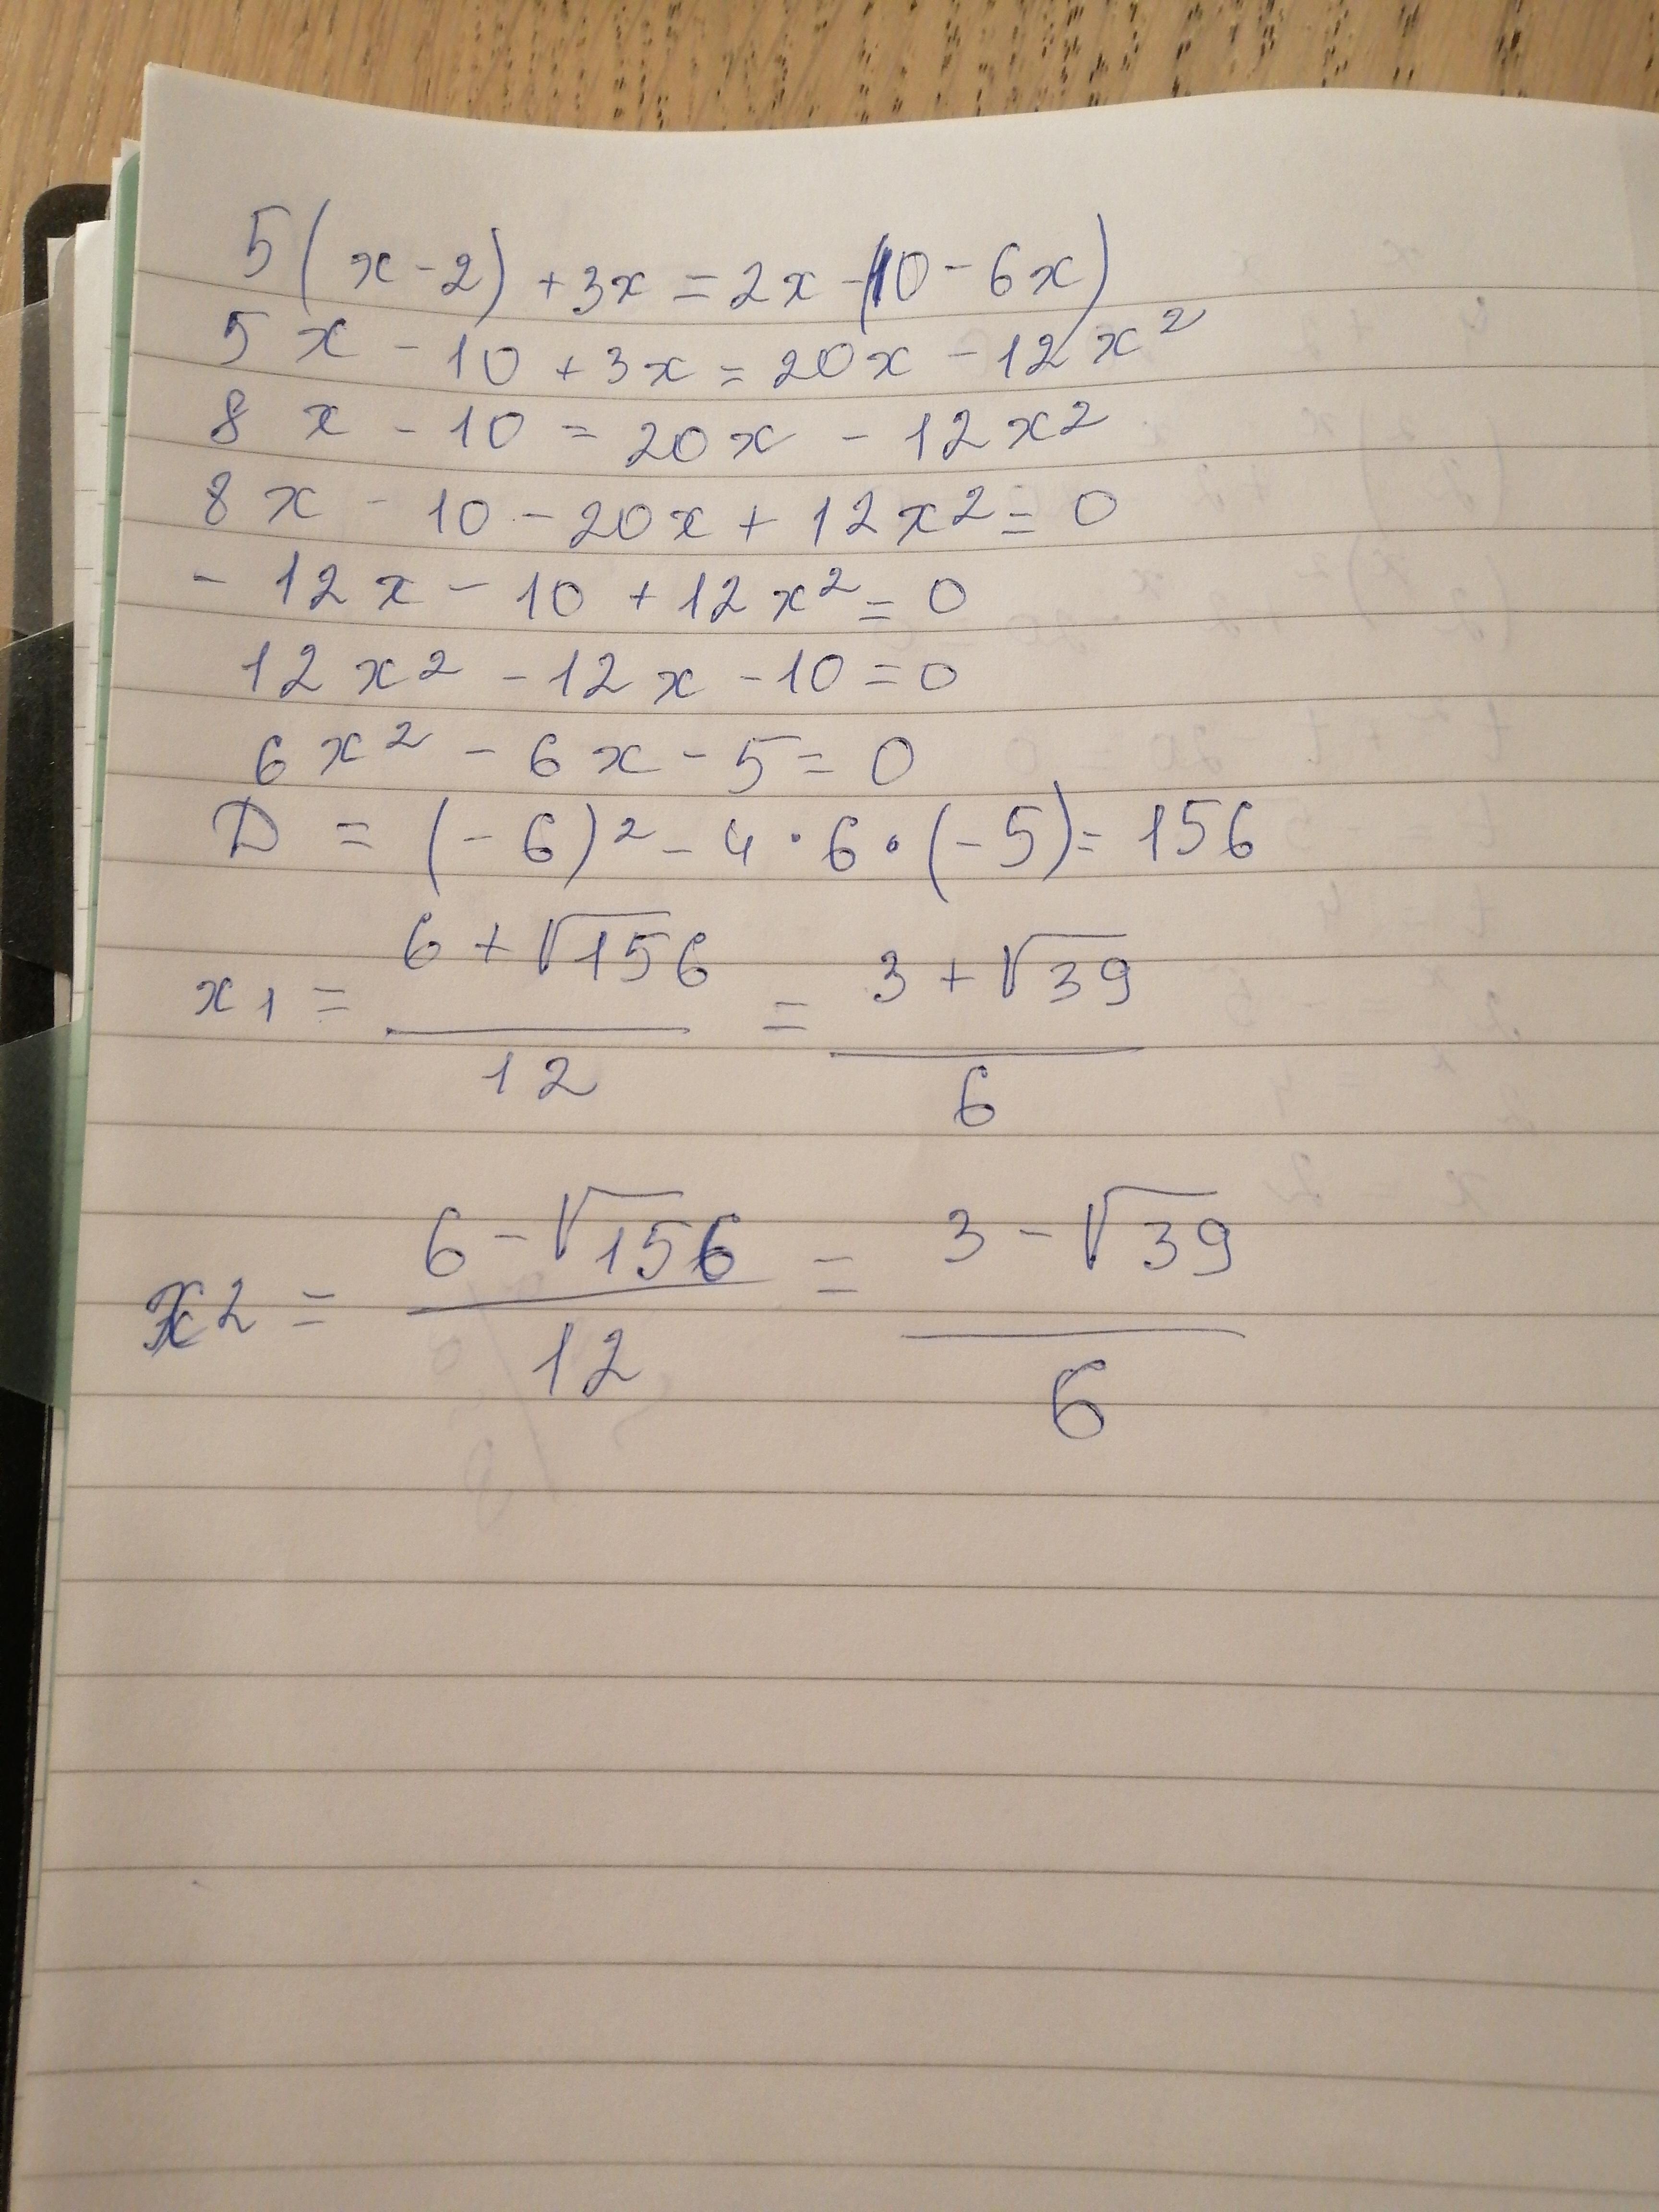 5(x-2)+3x=2x-(10-6x)
5x-10+3x=20x-12x²
8x-10=20x-12x²
8x-10-20x+12x²=0
-12x-10+12x²=0
12x²-12x-10=0
6x²-6x-5=0
D=(-6)²-4·6·(-5)=156
x₁=\frac{6+√156}{12}=\frac{3+√39}{6}
x₂=\frac{6-√156}{12}=\frac{3-√39}{6}